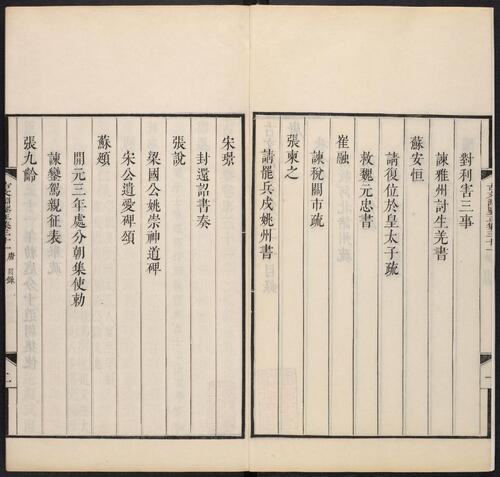 對利害三事
諫雅州討生羌書
蘇安恒
請復位於皇太子疏
救魏元忠書
崔融
諫稅關市疏
張柬之
請罷兵戍姚州書
宋璟
封還詔書奏
張說
梁國公姚崇神道碑
宋公遺愛碑頌
蘇頲
開元三年處分朝集使勅
諫鑾駕親征表
張九齡
唐 目錄
二